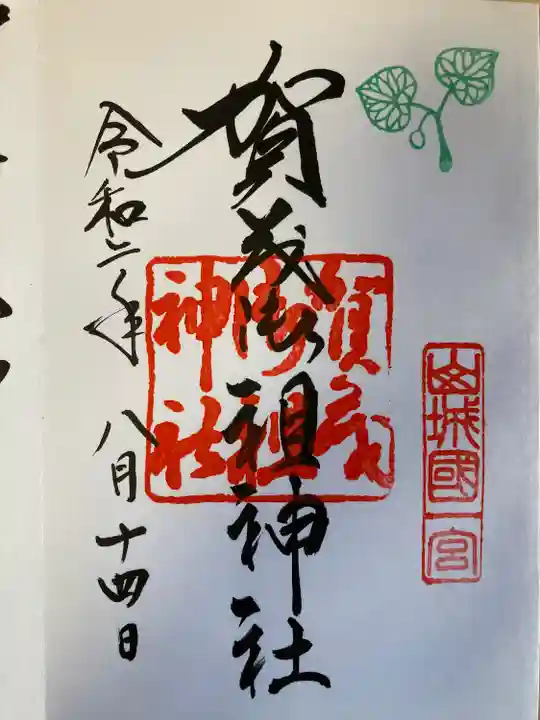 山城國一宮
賀茂御祖神社
賀茂
御祖
神社
令和二年八月十四日